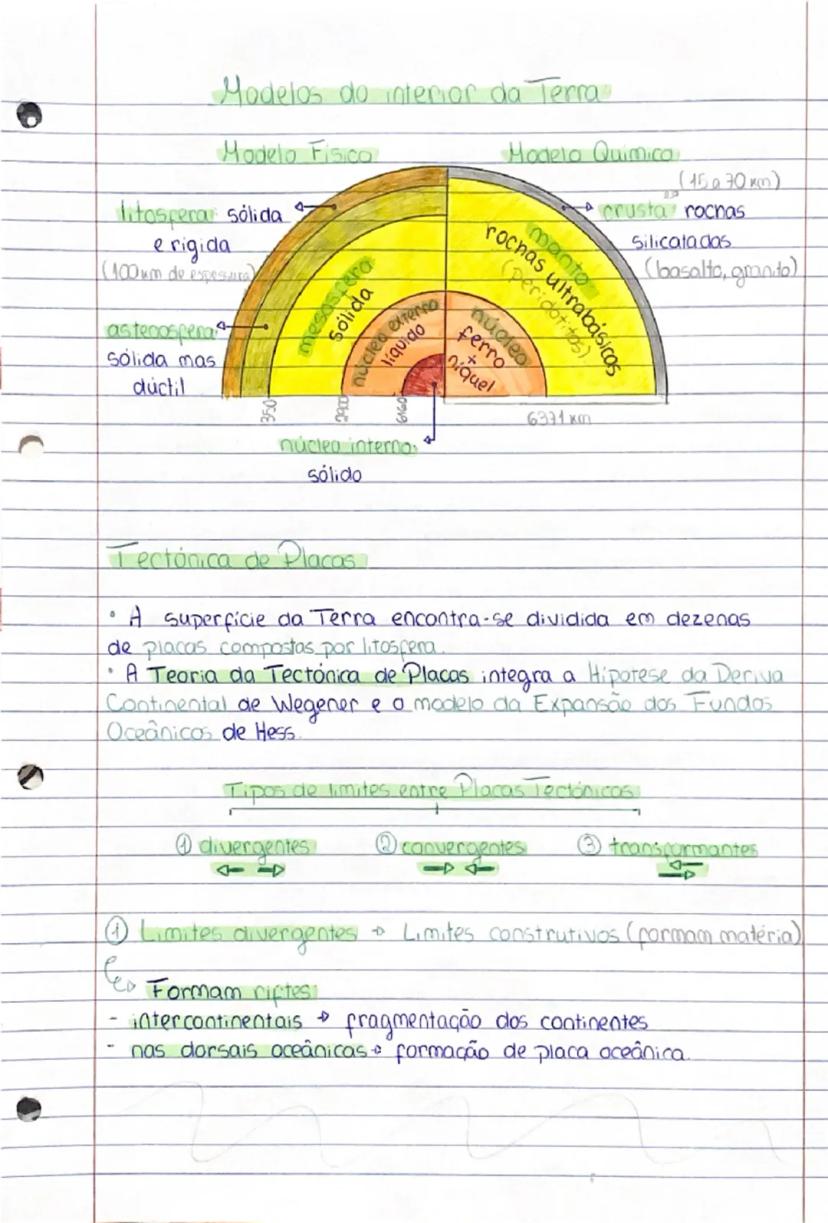 Modelos do interior da Terra
Modelo Físico
Modelo Químico
(15 a 70 km)
litosfera: sólida
e rígida
(100 km de espessura)
crusta: rochas
silicatadas
(basalto, granito)
astenosfera:
sólida mas
dúctil
mesosfera
sólida
núcleo externo
líquido
manto
rochas ultrabásicas
(peridotitos)
núcleo
ferro
+
níquel
350
2900
6371 km
núcleo interno:
sólido
Tectónica de Placas
• A superfície da Terra encontra-se dividida em dezenas
de placas compostas por litosfera.
• A Teoria da Tectónica de Placas integra a Hipótese da Deriva
Continental de Wegener e o modelo da Expansão dos Fundos
Oceânicos de Hess.
Tipos de limites entre Placas Tectónicas
① divergentes ② convergentes ③ transformantes
← → → ← ← →
① Limites divergentes → Limites construtivos (formam matéria)
↪ Formam riftes:
- intercontinentais → fragmentação dos continentes
- nas dorsais oceânicas → formação de placa oceânica.